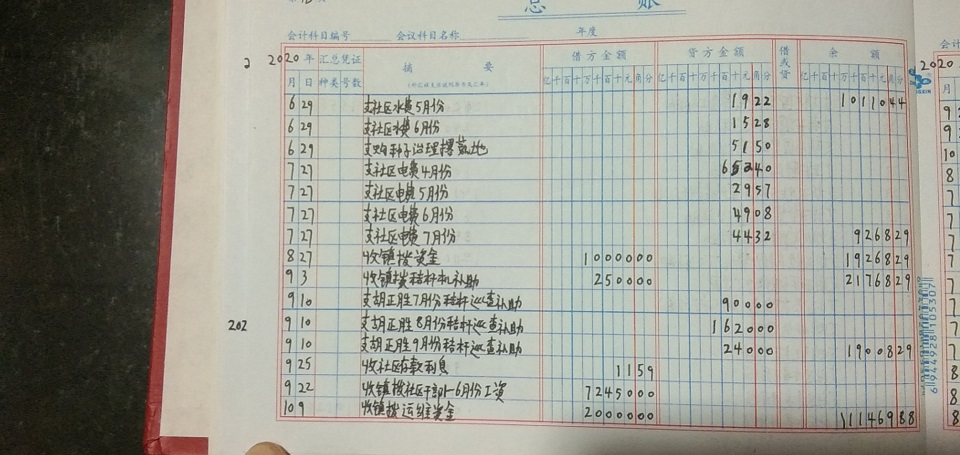 总 账
会计科目编号 会议科目名称 年度
2020 年 汇总凭证 摘 要 借方金额 贷方金额 借或贷 余 额
月 日 种类 号数 亿千百十万千百十元角分 亿千百十万千百十元角分 亿千百十万千百十元角分
6 29 支社区水费5月份 1922 1011044
6 29 支社区水费6月份 1528
6 29 支购种子治理撂荒地 5150
7 27 支社区电费4月份 65240
7 27 支社区电费5月份 2957
7 27 支社区电费6月份 4908
7 27 支社区电费7月份 4432 926829
8 27 收镇拨资金 1000000 1926829
9 3 收镇拨秸秆机补助 250000 2176829
9 10 支胡正胜7月份秸秆巡查补助 90000
9 10 支胡正胜8月份秸秆巡查补助 162000
9 10 支胡正胜9月份秸秆巡查补助 24000 1900829
9 25 收社区存款利息 1159
9 22 收镇拨社区干部1-6月份工资 7245000
10 9 收镇拨运维资金 2000000 11146988
2
202
2020
6944928105307